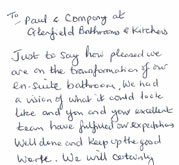 To Paul & Company at
Glenfield Bathrooms & Kitchens
Just to say how pleased we
are on the transformation of our
en-suite bathroom. We had
a vision of what it could look
like and you and your excellent
team have fulfilled our expectations
Well done and keep up the good
work. We will certainly